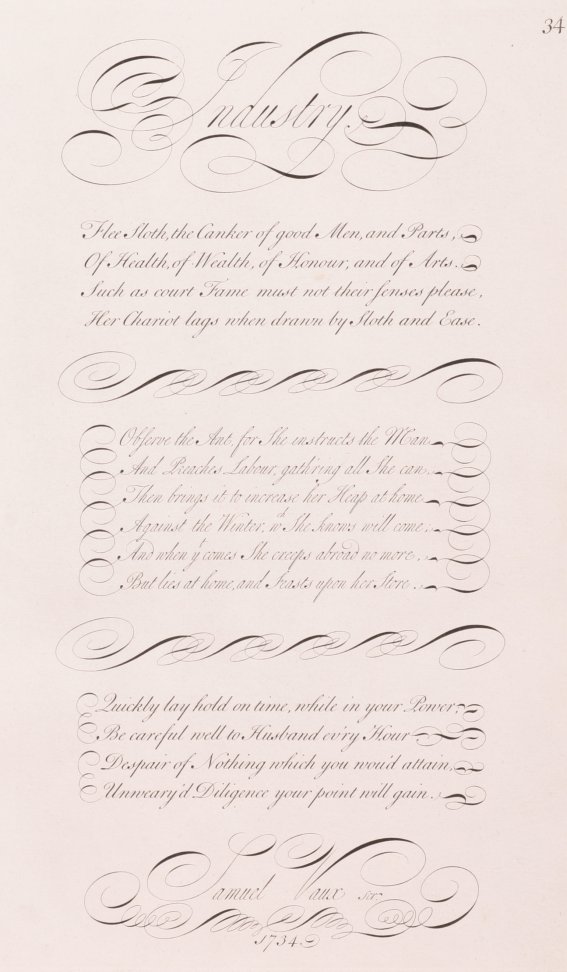 34
Industry.
Flee Sloth, the Canker of good Men, and Parts,
Of Health, of Wealth, of Honour, and of Arts.
Such as court Fame must not their senses please,
Her Chariot lags when drawn by Sloth and Ease.
Observe the Ant, for She instructs the Man
And Preaches Labour, gath'ring all She can.
Then brings it to increase her Heap at home
Against the Winter, wch She knows will come:
And when yt comes She creeps abroad no more,
But lies at home, and Feasts upon her Store.
Quickly lay hold on time, while in your Power,
Be careful well to Husband ev'ry Hour
Despair of Nothing which you wou'd attain,
Unweary'd Diligence your point will gain.
Samuel Vaux scr.
1734